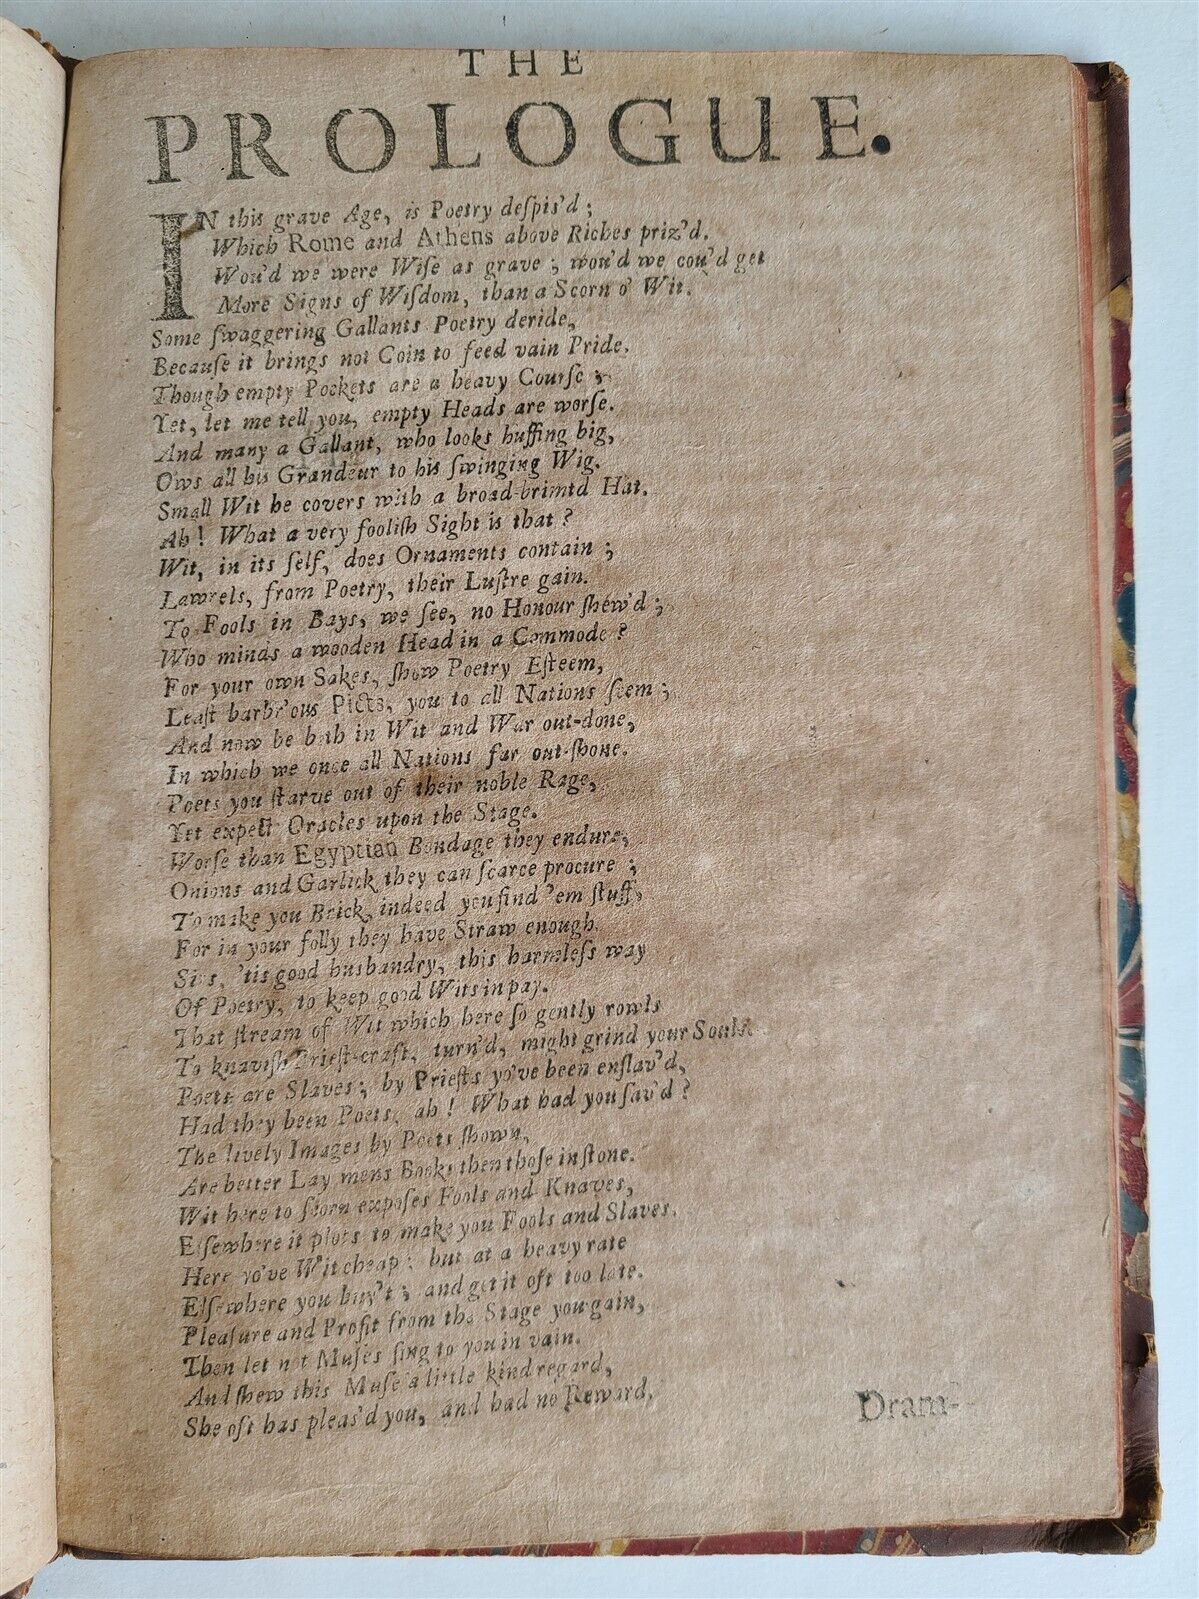 THE
PROLOGUE.
IN this grave Age, is Poetry deſpis'd;
Which Rome and Athens above Riches priz'd.
Wou'd we were Wiſe as grave; wou'd we cou'd get
More Signs of Wiſdom, than a Scorn o' Wit.
Some ſwaggering Gallants Poetry deride,
Becauſe it brings not Coin to feed vain Pride.
Though empty Pockets are a heavy Courſe;
Yet, let me tell you, empty Heads are worſe.
And many a Gallant, who looks huffing big,
Ows all his Grandeur to his ſwinging Wig.
Small Wit he covers with a broad-brimtd Hat.
Ah! What a very fooliſh Sight is that?
Wit, in its ſelf, does Ornaments contain;
Lawrels, from Poetry, their Luſtre gain.
To Fools in Bays, we ſee, no Honour ſhew'd;
Who minds a wooden Head in a Commode?
For your own Sakes, ſhow Poetry Eſteem,
Leaſt barb'rous Picts, you to all Nations ſeem;
And now be both in Wit and War out-done,
In which we once all Nations far out-ſhone.
Poets you ſtarve out of their noble Rage,
Yet expect Oracles upon the Stage.
Worſe than Egyptian Bondage they endure;
Onions and Garlick they can ſcarce procure;
To make you Brick, indeed you find 'em ſtuff,
For in your folly they have Straw enough.
Sirs, 'tis good husbandry, this harmleſs way
Of Poetry, to keep good Wits in pay.
That ſtream of Wit which here ſo gently rowls
To knaviſh Prieſt-craft, turn'd, might grind your Souls.
Poets are Slaves; by Prieſts yo've been enſlav'd,
Had they been Poets, ah! What had you ſav'd?
The lively Images by Poets ſhown,
Are better Lay mens Books then thoſe in ſtone.
Wit here to ſcorn expoſes Fools and Knaves,
Elſewhere it plots to make you Fools and Slaves.
Here yo've Wit cheap; but at a heavy rate
Elſewhere you buy't; and get it oft too late.
Pleaſure and Profit from the Stage you gain,
Then let not Muſes ſing to you in vain.
And ſhew this Muſe a little kind regard,
She oft has pleas'd you, and had no Reward.
Dram-